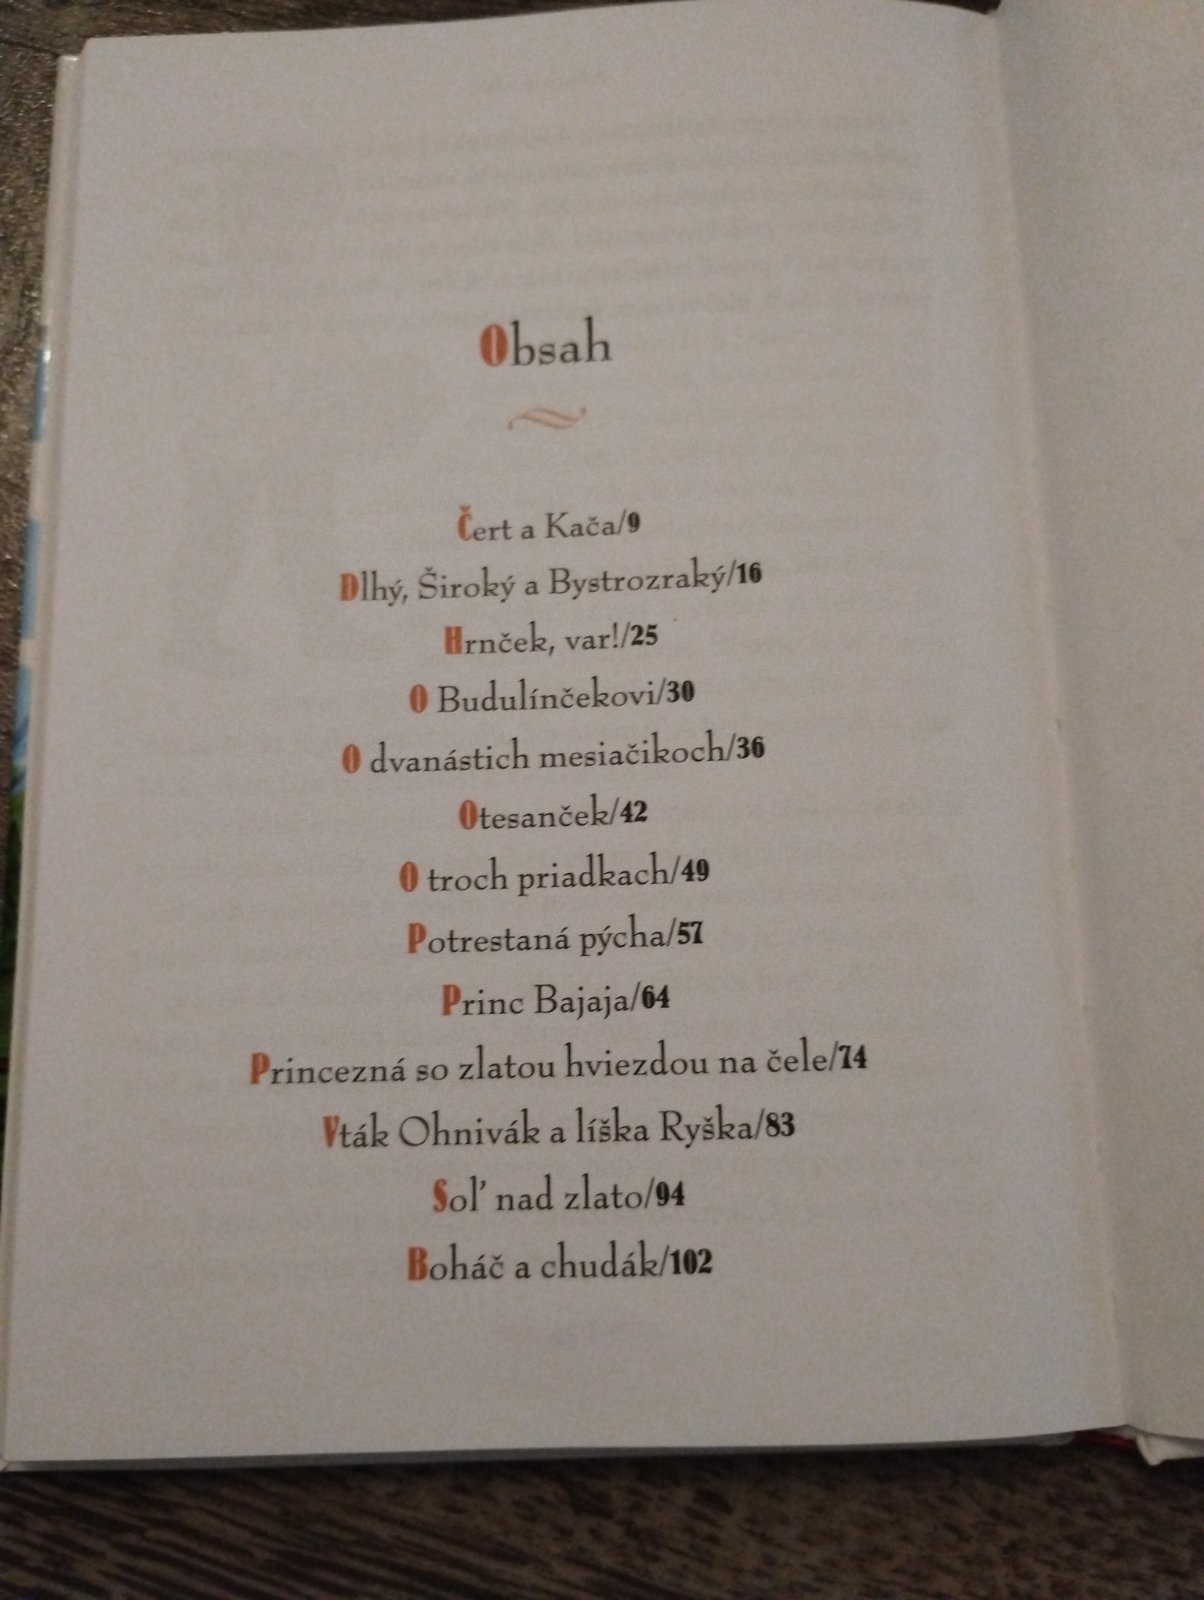 Obsah
Čert a Kača/9
Dlhý, Široký a Bystrozraký/16
Hrnček, var!/25
O Budulínčekovi/30
O dvanástich mesiačikoch/36
Otesanček/42
O troch priadkach/49
Potrestaná pýcha/57
Princ Bajaja/64
Princezná so zlatou hviezdou na čele/74
Vták Ohnivák a líška Ryška/83
Soľ nad zlato/94
Boháč a chudák/102